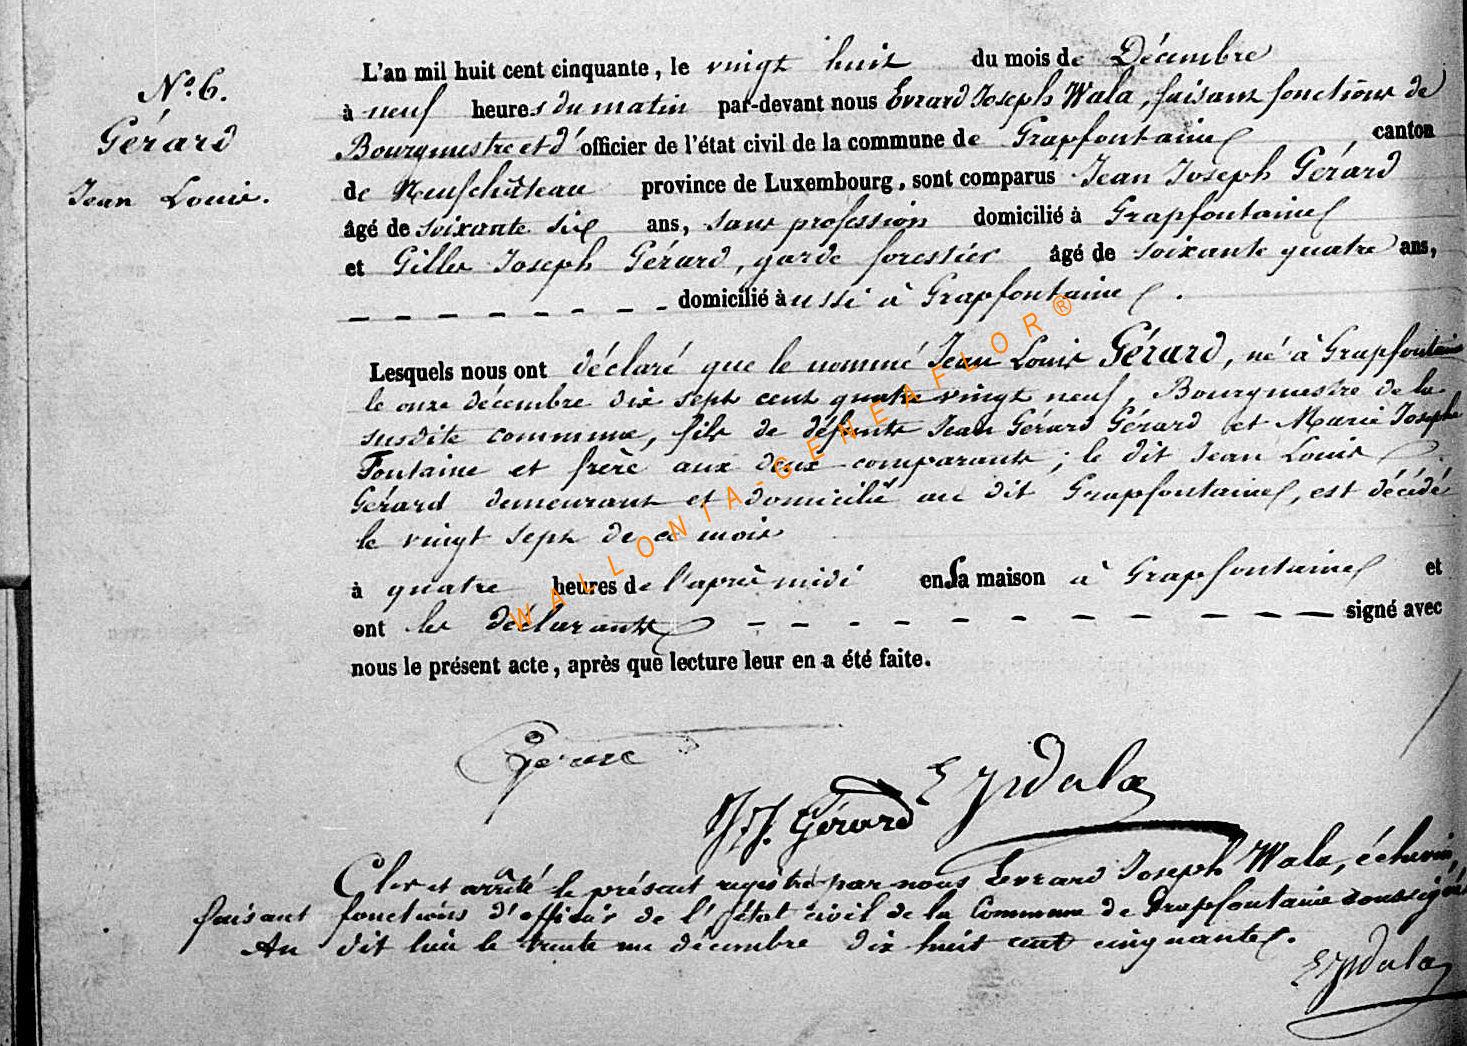 N.o 6.
Gérard
Jean Louis.
L'an mil huit cent cinquante, le vingt huit du mois de Décembre
à neuf heures du matin par-devant nous Evrard Joseph Wala, faisant fonctions de
Bourgmestre et d'officier de l'état civil de la commune de Grapfontaine canton
de Neufchâteau province de Luxembourg, sont comparus Jean Joseph Gérard
âgé de soixante six ans, sans profession domicilié à Grapfontaine
et Gilles Joseph Gérard, garde forestier âgé de soixante quatre ans,
domicilié aussi à Grapfontaine.
Lesquels nous ont déclaré que le nommé Jean Louis Gérard, né à Grapfontaine
le onze décembre dix sept cent quatre vingt neuf, Bourgmestre de la
susdite commune, fils de défunts Jean Gérard Gérard et Marie Josephe
Fontaine et frère aux deux comparants; le dit Jean Louis
Gérard demeurant et domicilié au dit Grapfontaine, est décédé
le vingt sept de ce mois
à quatre heures de l'après midi en sa maison à Grapfontaine et
ont les déclarants signé avec
nous le présent acte, après que lecture leur en a été faite.
Gérard
J.J. Gérard
EJWala
Clos et arrêté le présent registre par nous Evrard Joseph Wala, échevin,
faisant fonctions d'officier de l'état civil de la Commune de Grapfontaine soussigné
Au dit lieu le trente un décembre dix huit cent cinquante.
EJWala
WALLONIA-GENEAFLOR®